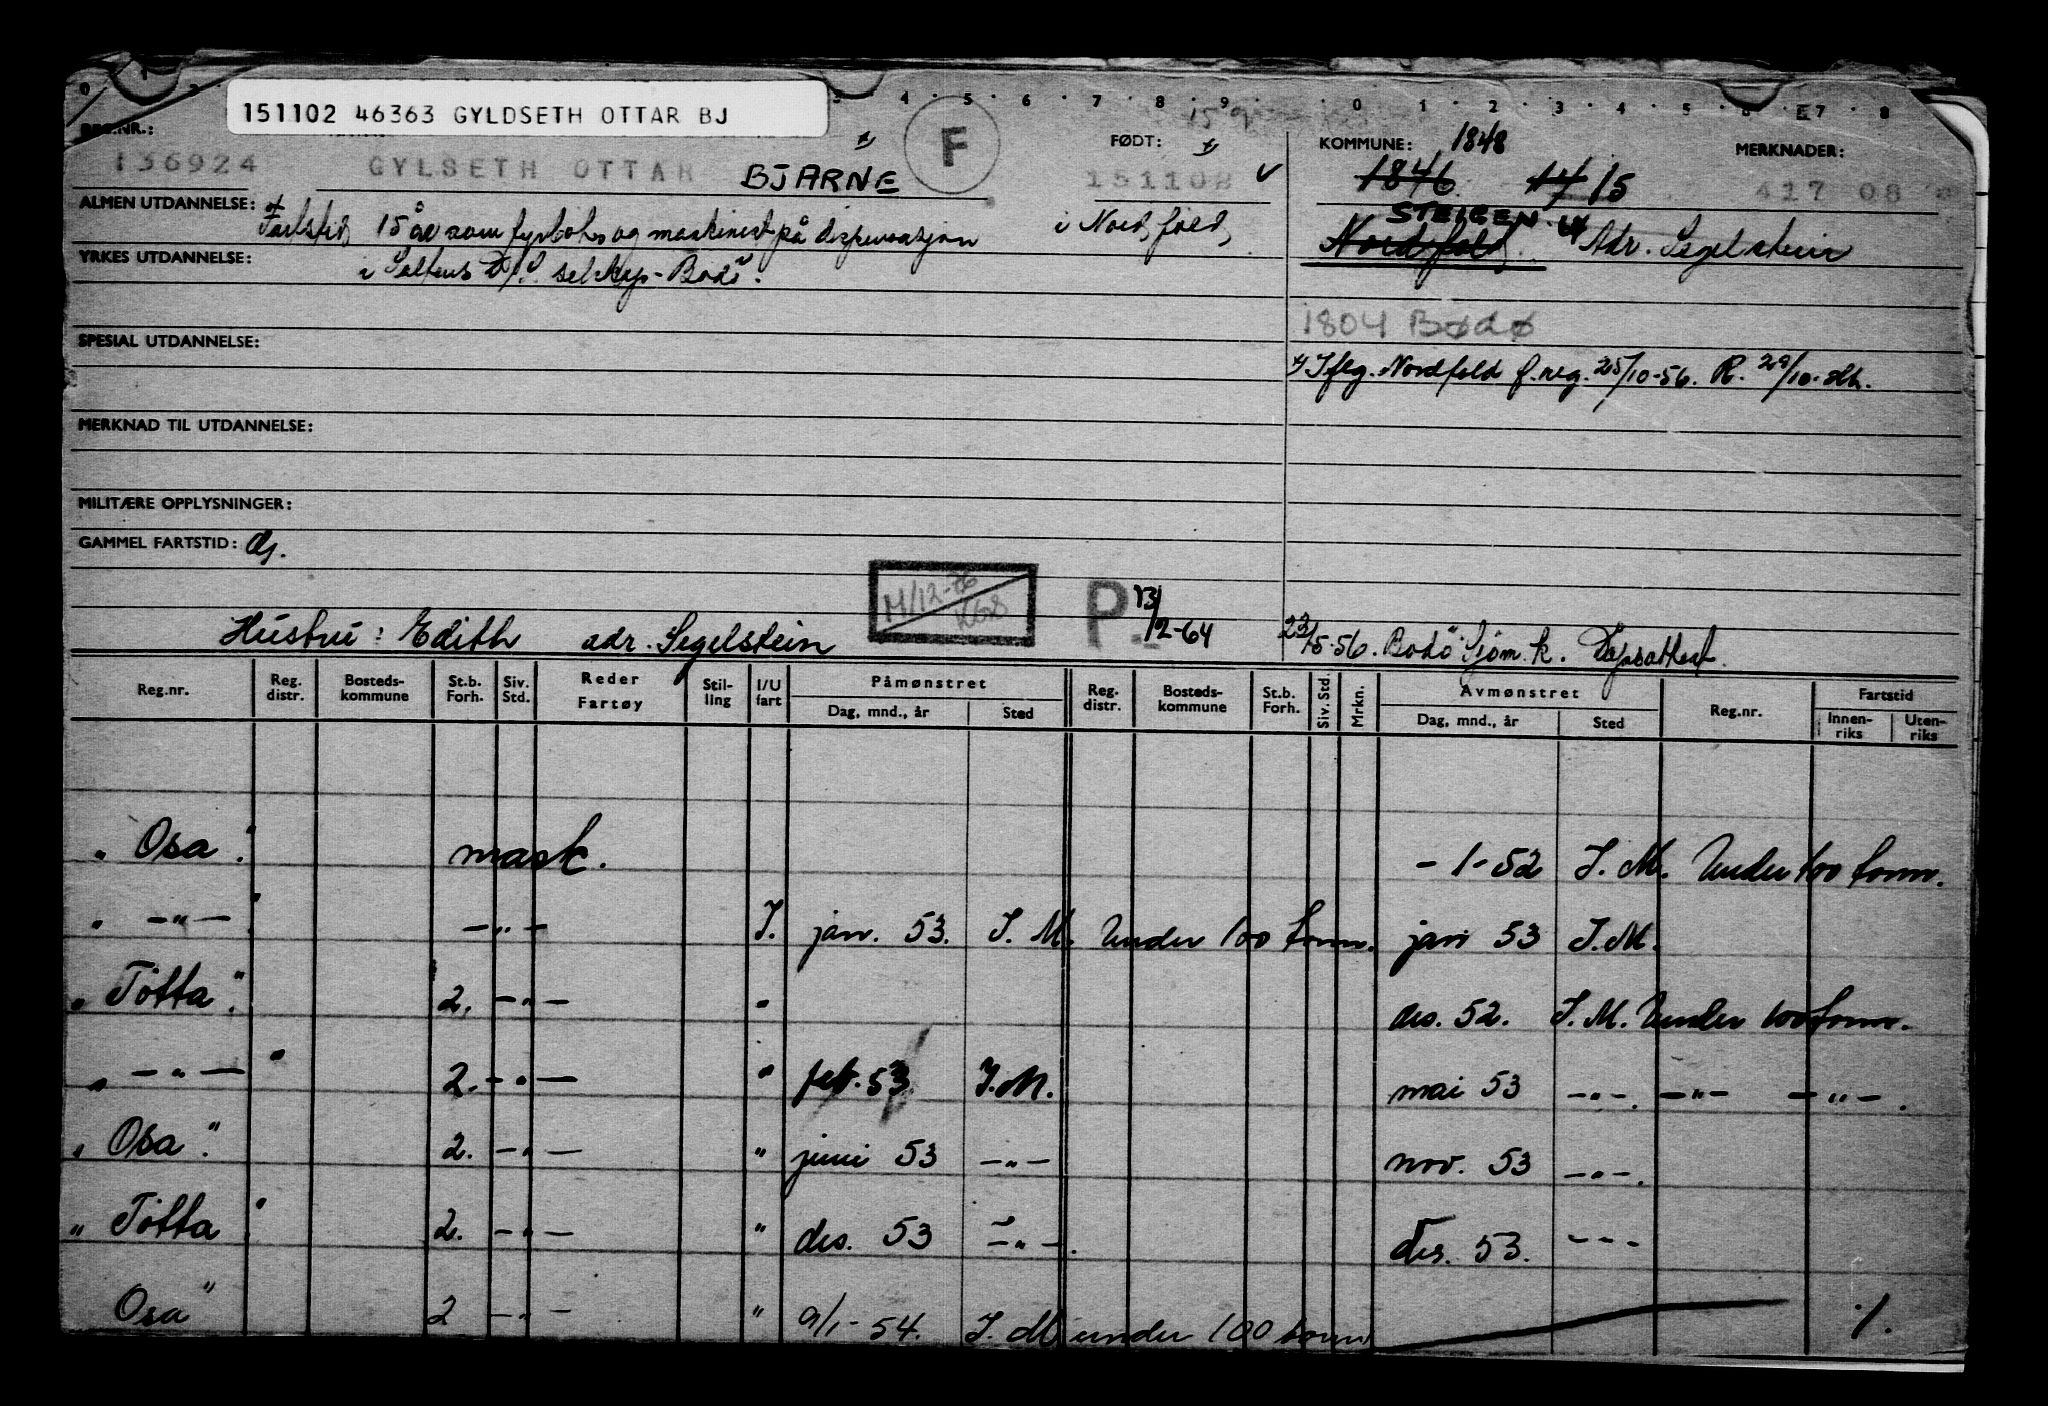 151102 46363 GYLDSETH OTTAR BJ
REG.NR.: FØDT: KOMMUNE: 1848 MERKNADER:
136924 GYLSETH OTTAR BJARNE F 151102 1846 14 15 417 08
ALMEN UTDANNELSE: Fartstid 15 år som fyrbøter og maskinist på i Nordfold, STEIGEN Nordfold Adr. Segelstein
YRKES UTDANNELSE: i Saltens D/S selskap - Bodö.
1804 BØDØ
SPESIAL UTDANNELSE:
x) Iflg. Nordfold f.reg. 25/10-56. R. 29/10-
MERKNAD TIL UTDANNELSE:
MILITÆRE OPPLYSNINGER:
GAMMEL FARTSTID:
M/12-76
P. 13/2-64
Hustru: Edith adr. Segelstein 23/5-56. Bodö Sjöm.k.
Reg.nr. Reg. distr. Bosteds- kommune St.b. Forh. Siv. Std. Reder Fartøy Stil- ling I/U fart Påmønstret Dag, mnd., år Sted Reg. distr. Bosteds- kommune St.b. Forh. Siv. Std. Mrkn. Avmønstret Dag, mnd., år Sted Reg.nr. Fartstid Innen- riks Uten- riks
„ Osa". mask. -1-52 I. M. Under 100 tonn.
„ -"- -"- I. jan. 53. I. M. Under 100 tonn. jan 53 I.M.
„ Totta". 2. -"- " des. 52. I. M. Under 100 tonn.
„ -"- " 2. -"- " feb. 53. I.M. mai 53 -"-. -"- -"-.
„ Osa". 2. -"- " juni 53 -"- nov. 53 -"-.
„ Totta". 2. -"- " des. 53 -"-. des. 53. -"-
Osa" 2 -"- " 9/1-54. I. M under 100 tonn ./.